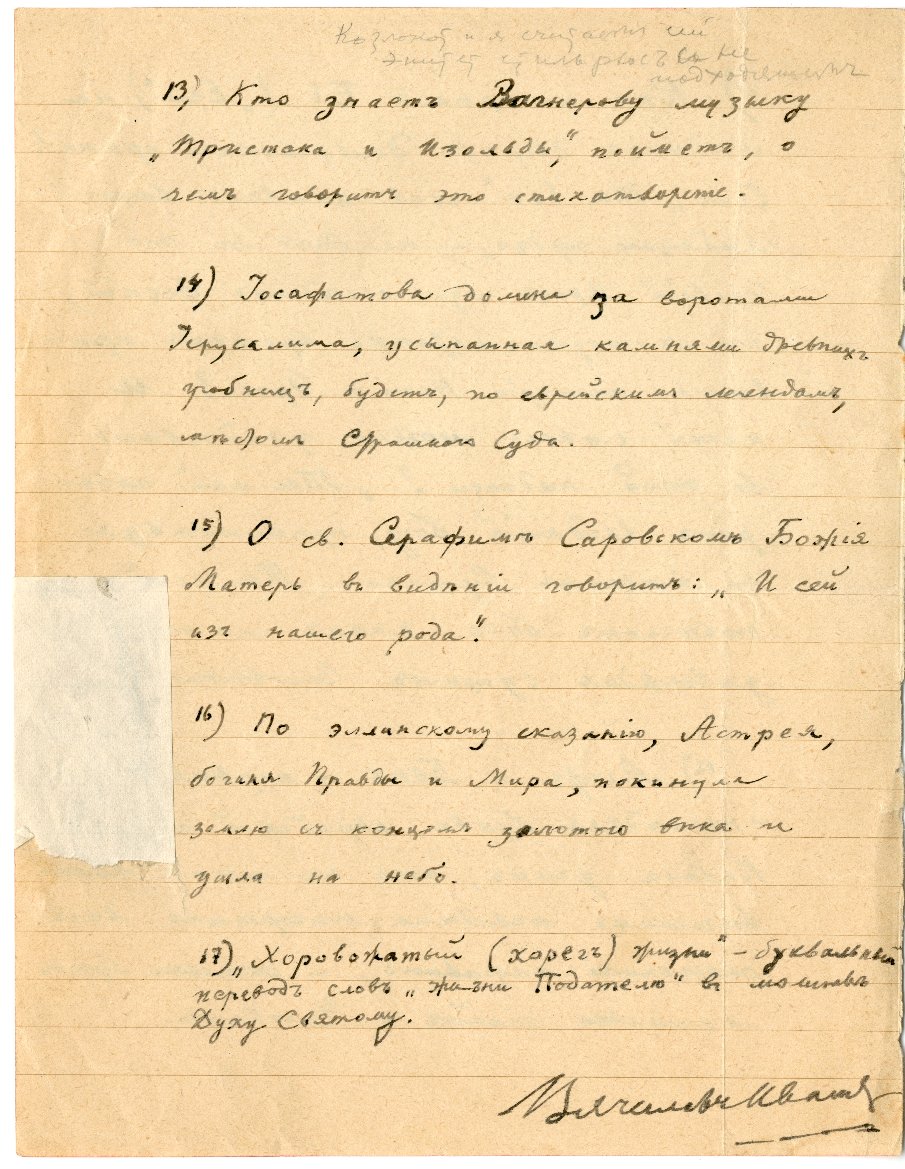 и я считаемъ сей
эпитет не
подходящимъ
13) Кто знаетъ Вагнерову музыку
„Тристана и Изольды", пойметъ, о
чемъ говоритъ это стихотворенiе.
14) Iосафатова долина за воротами
Iерусалима, усыпанная камнями древнихъ
гробницъ, будетъ, по еврейскимъ легендамъ,
мѣстомъ Страшнаго Суда.
15) О св. Серафимѣ Саровскомъ Божiя
Матерь въ видѣнiи говоритъ: „И сей
изъ нашего рода".
16) По эллинскому сказанiю, Астрея,
богиня Правды и Мира, покинула
землю съ концомъ золотого вѣка и
ушла на небо.
17) „Хоровожатый (хорегъ) жизни" – буквальный
переводъ словъ „жизни Подателю" въ молитвѣ
Духу Святому.
Вячеславъ Ивановъ